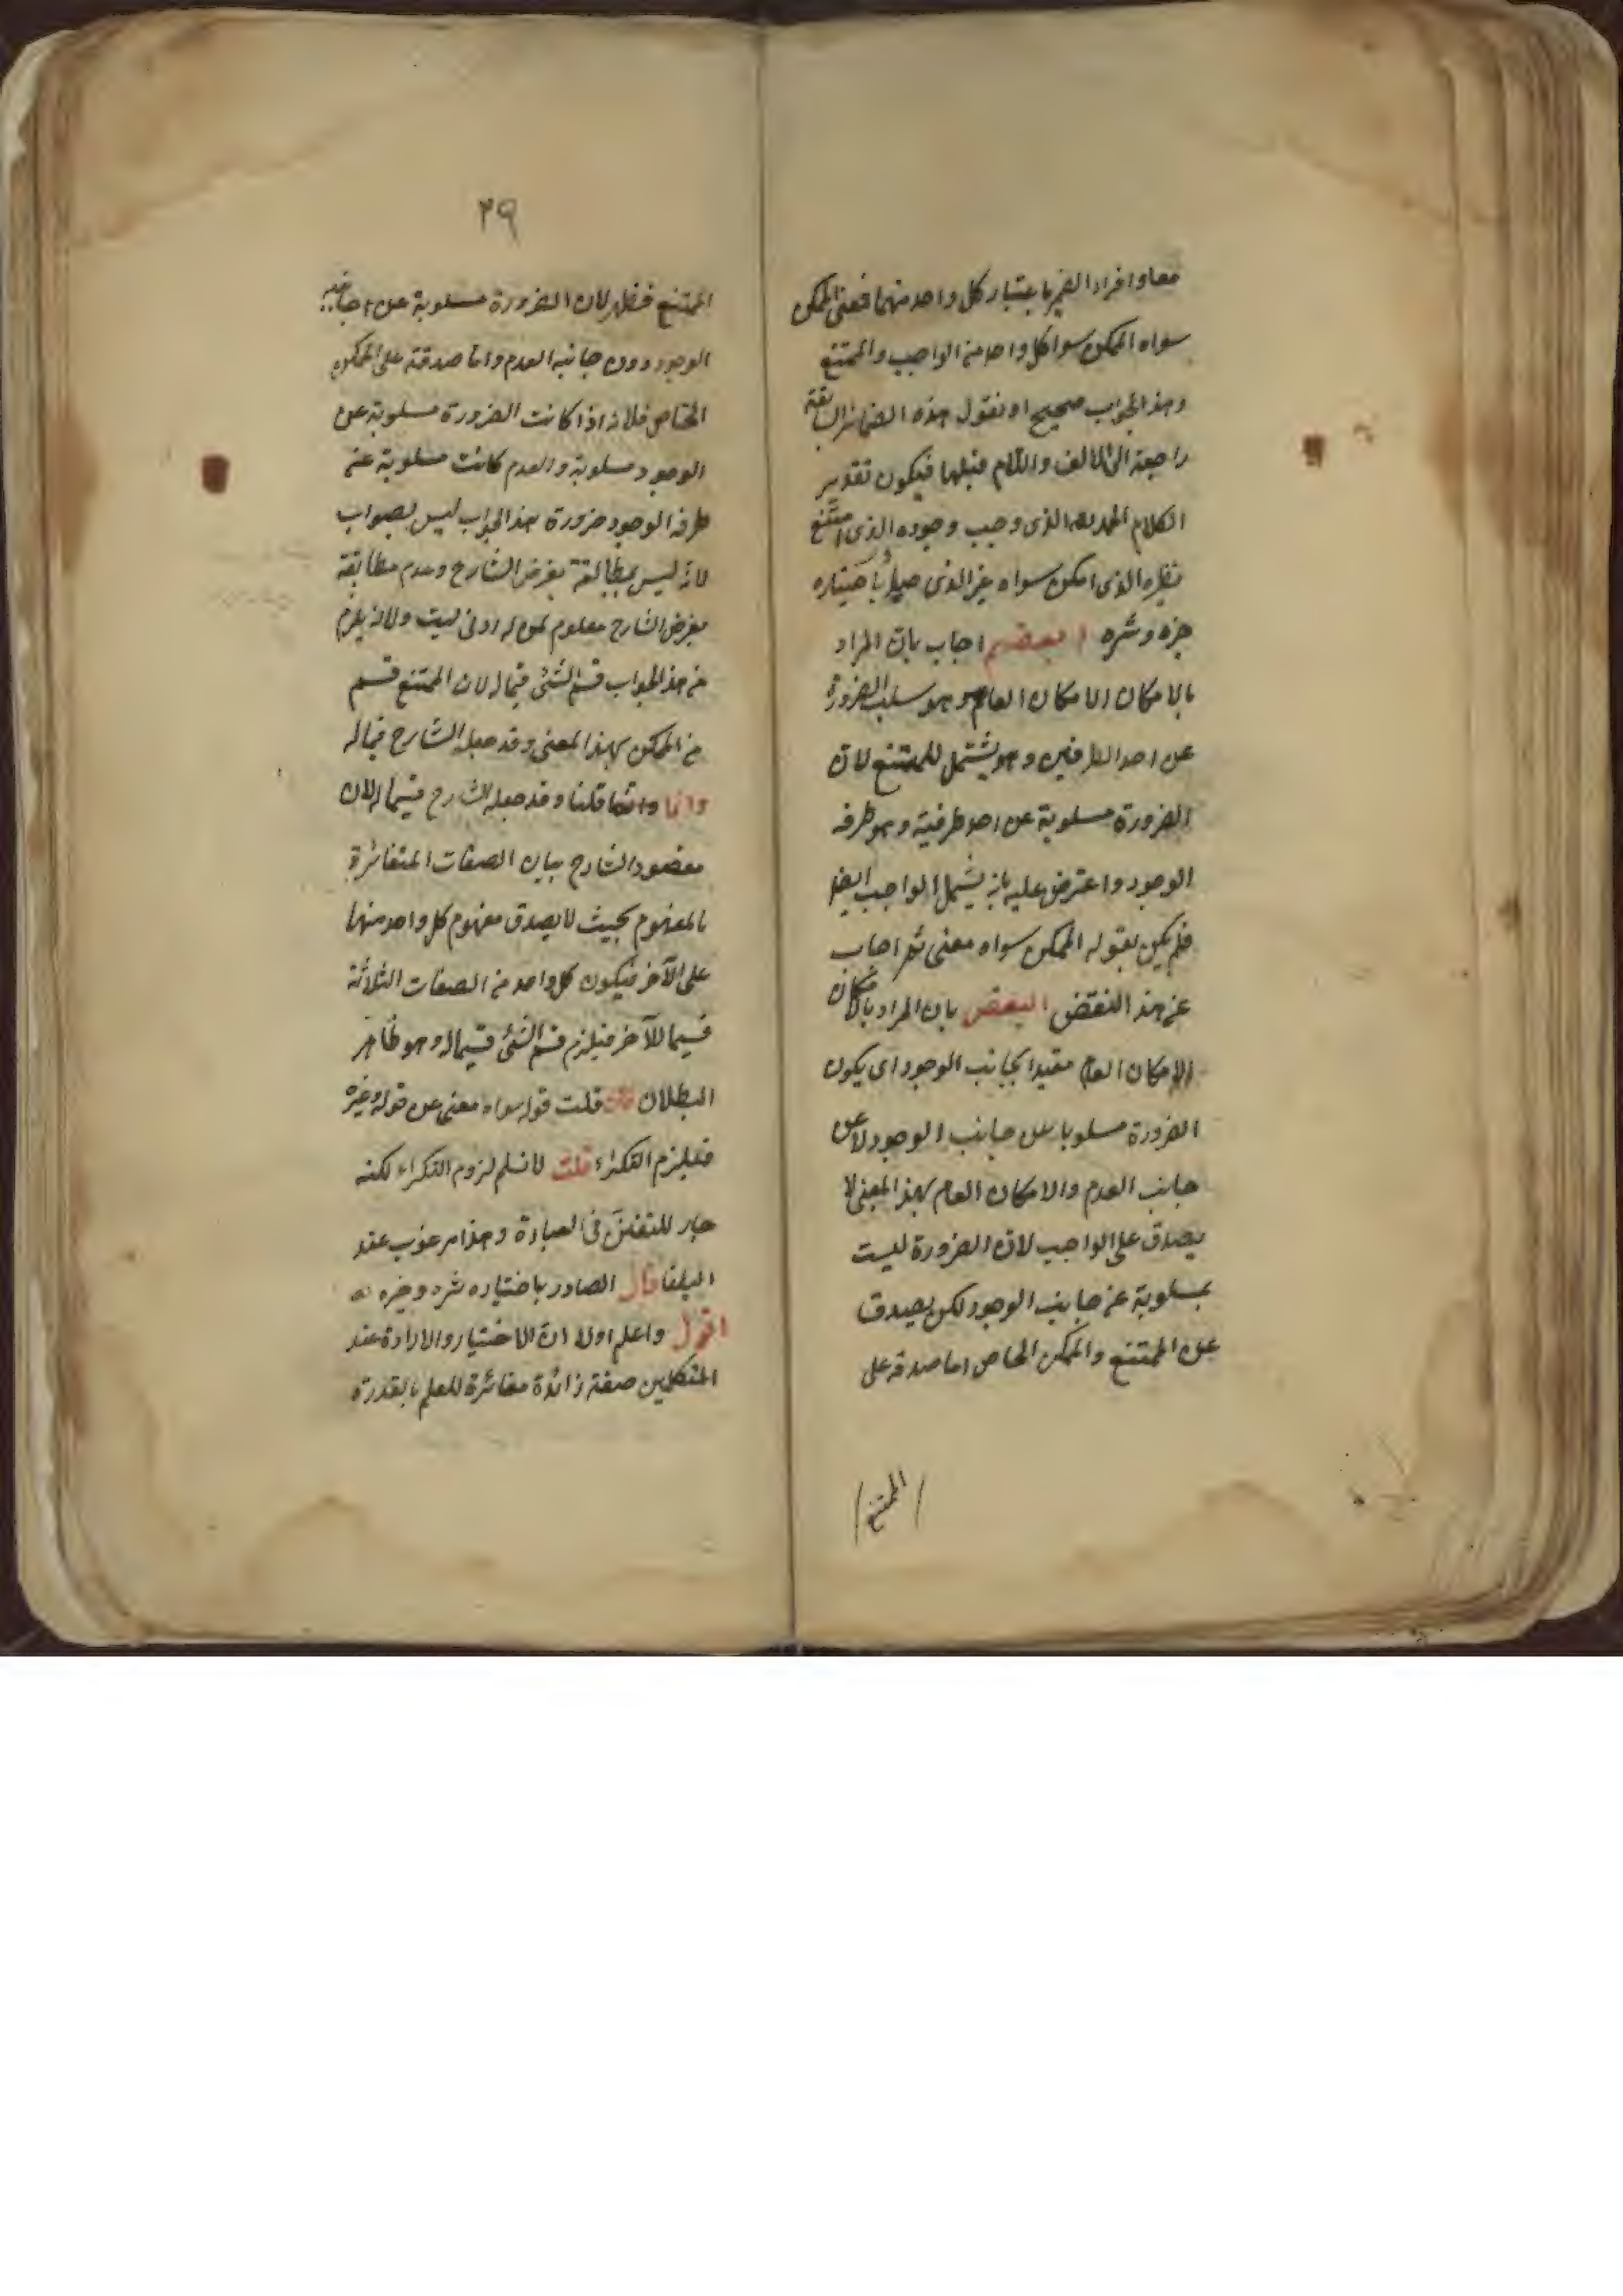 معا وافراد الضمير باعتبار كل واحد منهما فمعنى الممكن
سواه الممكن سوا كل واحد من الواجب والممتنع
وهذا الجواب صحيح او نقول هذه الضمائر السابقة
راجعة الى الالف واللام قبلها فيكون تقدير
الكلام الحمد لله الذى وجب وجوده الذى امتنع
نظيره الذى امكن سواه غير الذى باختياره
خيره وشره بعضهم اجاب بان المراد
بالامكان الامكان العام وهو سلب الضرورة
عن احد الطرفين وهو يشتمل للممتنع لان
الضرورة مسلوبة عن احد طرفيه وهو طرفه
الوجود واعترض عليه بانه يشمل الواجب ايضا
فلم يكن لقوله الممكن سواه معنى ثم اجاب
عن هذ النقض البعض بان المراد بالامكان
الامكان العام مقيدا بجانب الوجود اى يكون
الضرورة مسلوبا عن جانب الوجود لا عن
جانب العدم والامكان العام بهذ المعنى لا
يصدق على الواجب لان الضرورة ليست
بمسلوبة عن جانب الوجود لكن يصدق
عن الممتنع والممكن الخاص اما صدقه على
الممتنع
٣٩
الممتنع فظهر لان الضرورة مسلوبة عن
الوجود دون جانبه العدم واما صدقه على الممكن
الخاص فلانه اذا كانت الضرورة مسلوبة عن
الوجود مسلوبة والعدم كانت مسلوبة عن
طرفه الوجود ضرورة هذ الجواب ليس بصواب
لانه ليس بمطابقة بغرض الشارح وعدم مطابقة
بغرض الشارح معلوم لمن له ادنى ولانه يلزم
من هذ الجواب قسم الشئ قيما له لان الممتنع قسم
من الممكن بهذ المعنى وقد جعله الشارح قيما له
وانما وانما قلنا وقد جعله الشارح قسيما له لان
مقصود الشارح بيان الصفات المتغائرة
بالمفهوم بحيث لا يصدق مفهوم كل واحد منهما
على الآخر فيكون كل واحد من الصفات الثلاثة
قسيما للآخر فيلزم قسم الشئ قسيما له وهو ظاهر
البطلان فان قلت قوله سواه معنى عن قوله وغيره
فليلزم التكراء قلت لا نسلم لزوم التكراء لكنه
جار للتفنن فى العبارة وهذا مرغوب عند
البلغا قال الصادر باختياره شره وخيره
اقول واعلم اولا ان الاختيار والارادة عند
المتكلمين صفة زائدة مغائرة للعلم بالقدرة